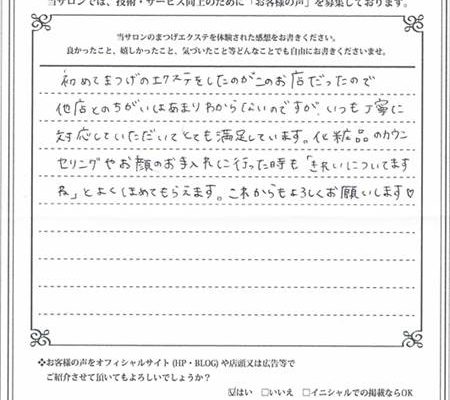 当サロンでは、技術・サービス向上のために「お客様の声」を募集しております。
当サロンのまつげエクステを体験された感想をお書きください。
良かったこと、嬉しかったこと、気づいたこと等どんなことでも自由にお書きくださいませ。
初めてまつげのエクステをしたのがこのお店だったので
他店とのちがいはあまりわからないのですが、いつも丁寧に
対応していただいてとても満足しています。化粧品のカウン
セリングやお顔のお手入れに行った時も「きれいについてます
ね」とよくほめてもらえます。これからもよろしくお願いします♡
❖お客様の声をオフィシャルサイト(HP・BLOG)や店頭又は広告等で
ご紹介させて頂いてもよろしいでしょうか？
☑はい □いいえ □イニシャルでの掲載ならOK